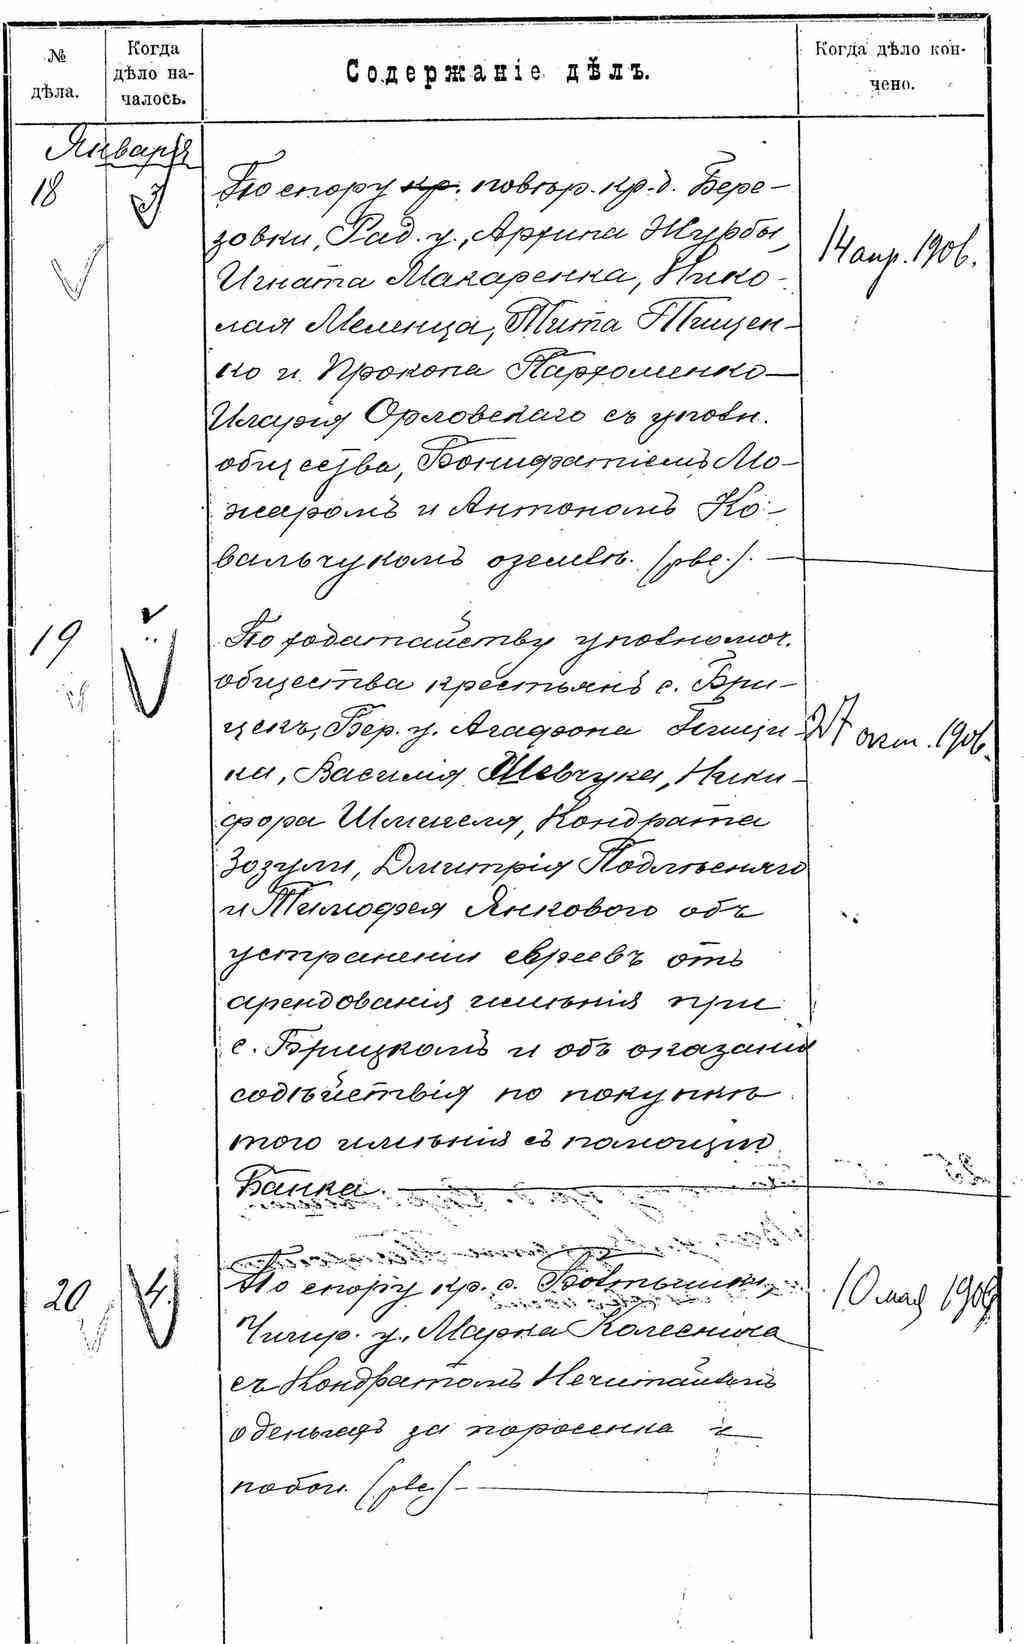 № дѣла.
Когда дѣло на-
чалось.
Содержаніе дѣлъ.
Когда дѣло кон-
чено.
Января
18
3
По спору кр. повѣр. кр. д. Бере-
зовки, Рад. у., Архипа Журбы,
Игната Макаренка, Нико-
лая Меленца, Тита Тищен-
ко и Прокопа Пархоменко
Иларія Орловскаго съ уполн.
общества, Бонифатіемъ Мо-
жаромъ и Антономъ Ко-
вальчукомъ о землѣ.
14 апр. 1906.
19
По ходатайству уполномоч.
общества крестьянъ с. Бри-
цекъ, Бер. у. Агафона
ка, Василія Шевчука, Ники-
фора Шмигеля, Кондрата
Зозули, Дмитрія Подлѣсняго
и Тимофея Янкового объ
устраненіи евреевъ отъ
арендованія имѣнія при
с. Брицкомъ и объ оказаніи
содѣйствія по покупкѣ
того имѣнія съ помощію
Банка.
27 окт. 1906.
20
4.
По спору кр. с. Болтышки,
Чигир. у., Марка Колесника
съ Кондратомъ Нечитайломъ
о деньгахъ за поросенка и
побои.
10 мая 1906